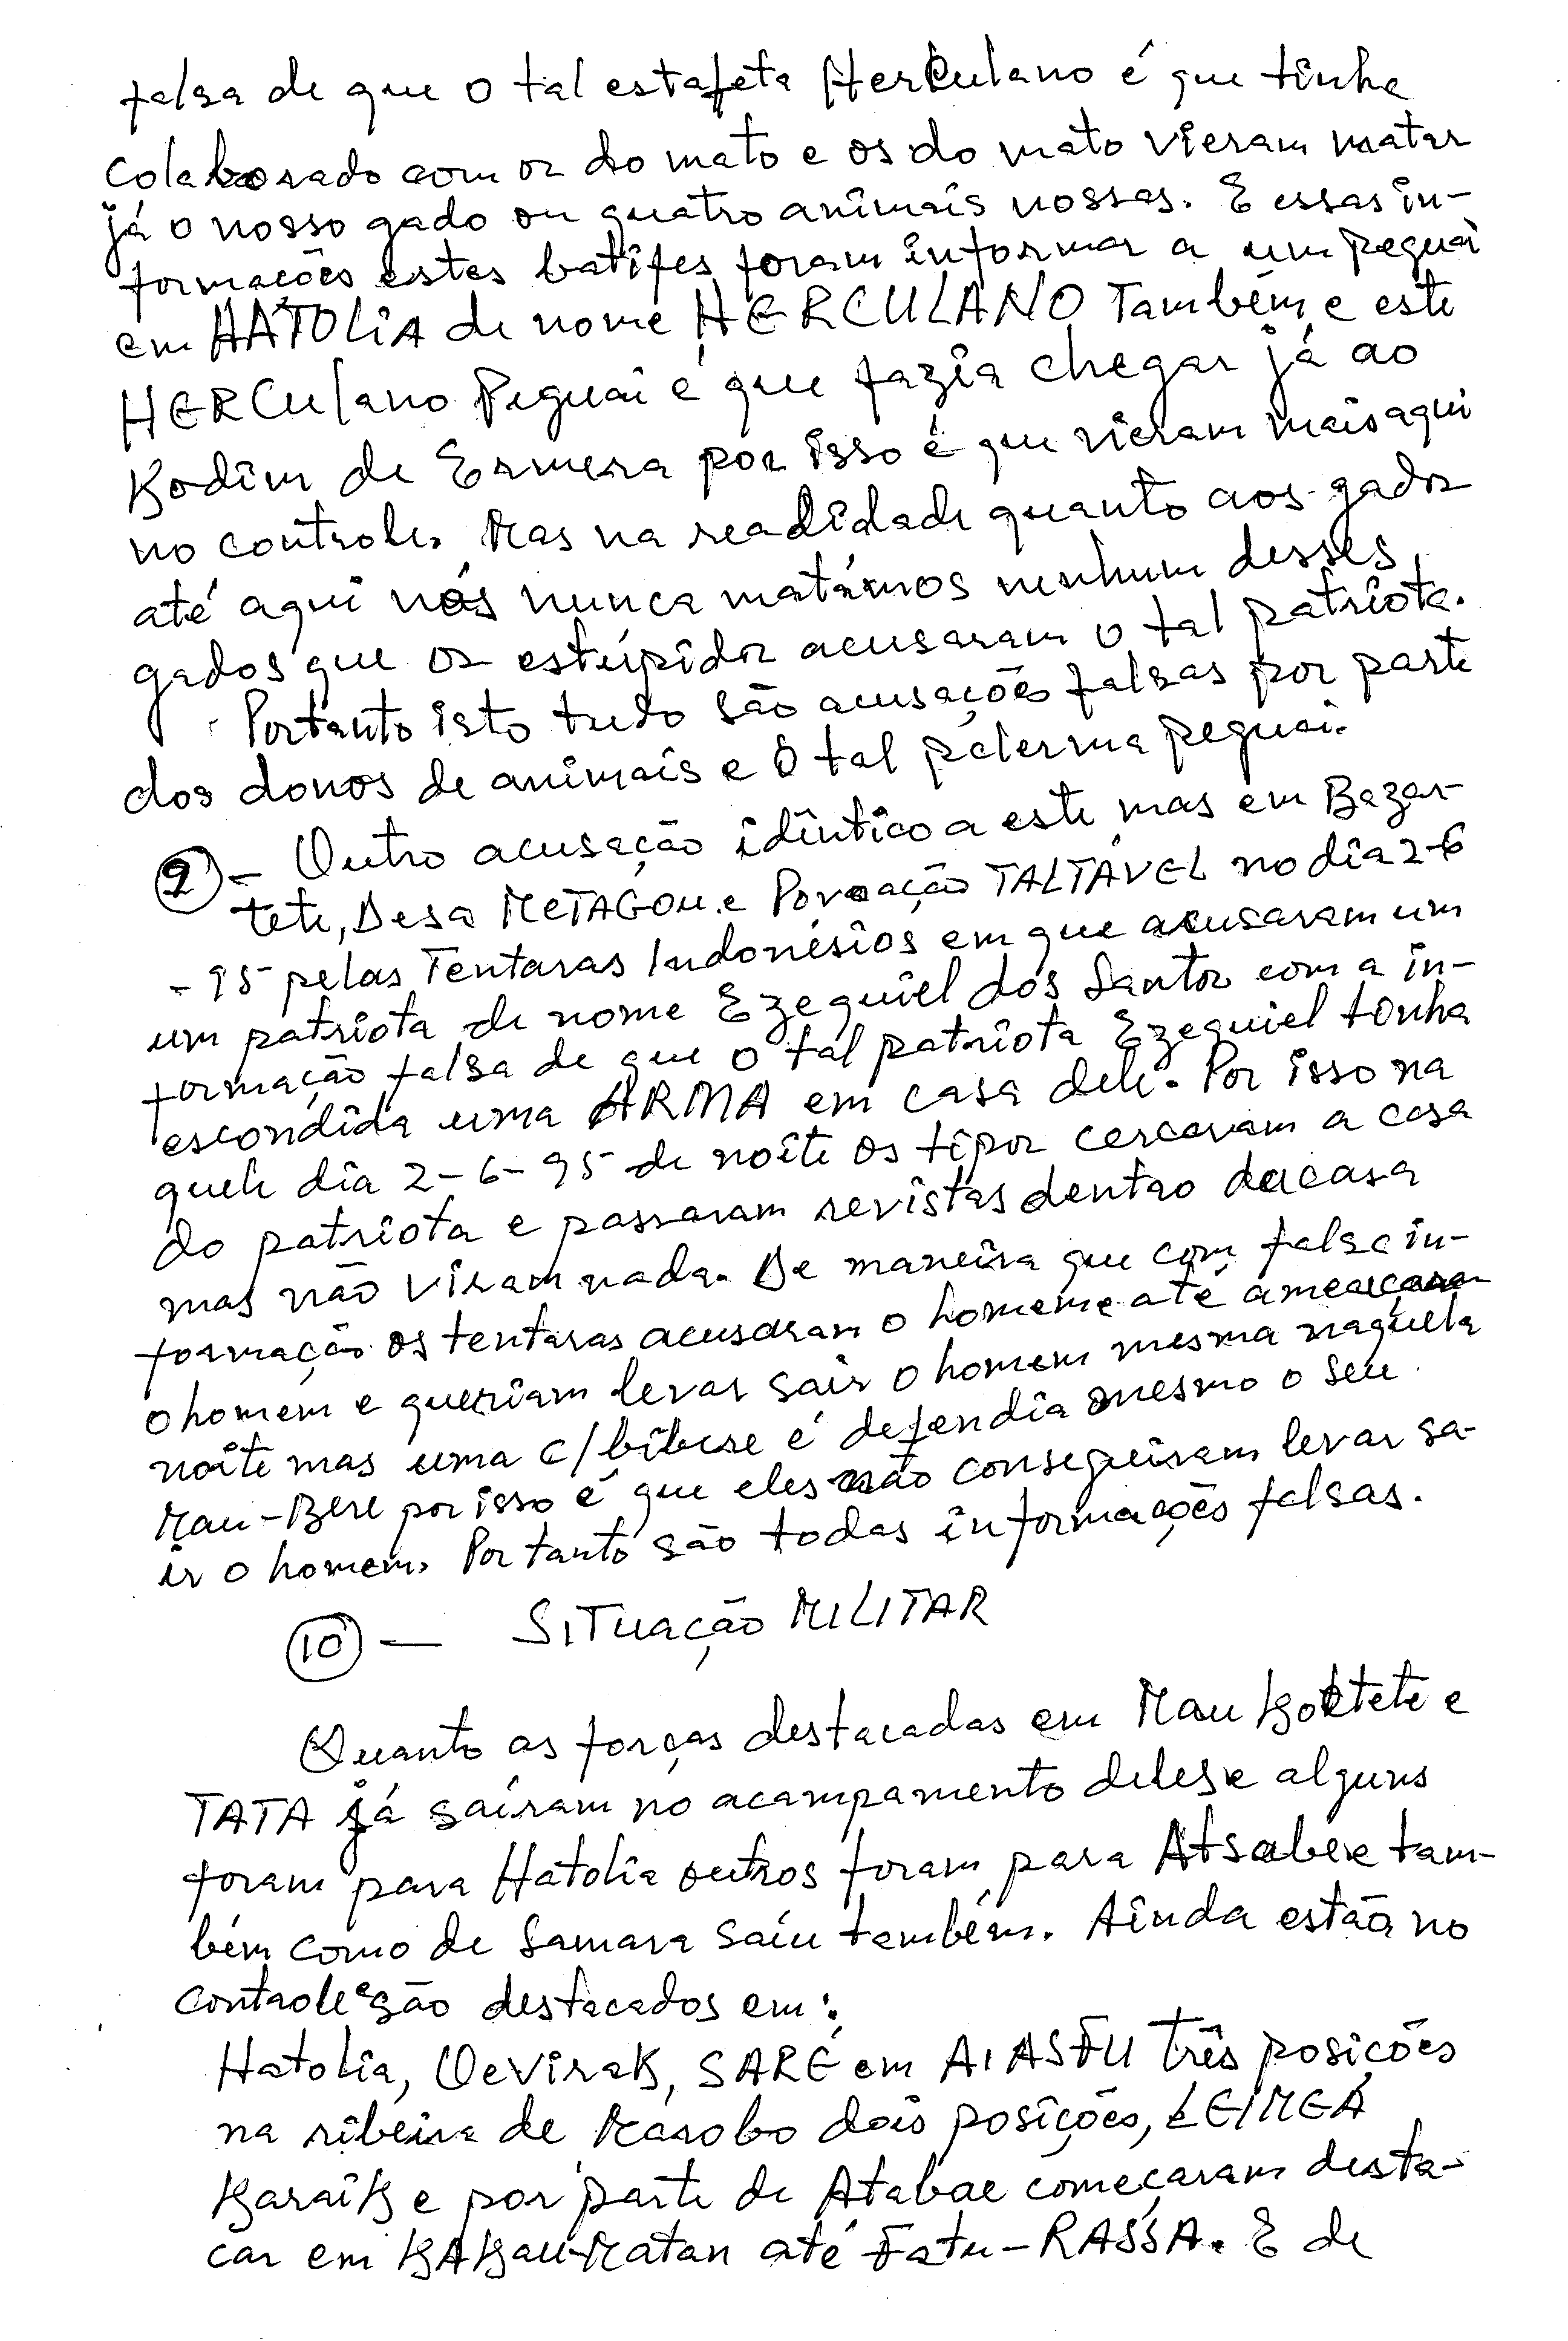 falsa de que o tal estafeta Herculano é que tinha
colaborado com os do mato e os do mato vieram matar
já o nosso gado ou quatro animais nossas. E essas in-
formacões estes batifes foram informar a um peguai
em HATOLIA de nome HERCULANO Também e este
HERCulano Peguai é que fazia chegar já ao
Kodim de Ermera por isso é que vieram mais aqui
no controle. Mas na readidade quanto aos gados
até aqui nós nunca matámos nenhum desses
gados que os estúpidos acusaram o tal patriota.
Portanto isto tudo são acusações falsas por parte
dos donos de animais e o tal palerma peguai.
9 - Outro acusação idêntico a este mas em Bazar-
tete, Desa METAGOU e Povoação TALTÁVEL no dia 2-6
- 95 pelas Tentaras Indonésios em que acusaram um
um patriota de nome Ezequiel dos Santos com a in-
formação falsa de que o tal patriota Ezequiel tonha
escondida uma ARMA em casa dele. Por isso na
quele dia 2-6-95 de noite os tipos cercavam a casa
do patriota e passaram revistas dentro da casa
mas não viram nada. De maneira que com falsa in-
formação os tentaras acusaram o homem e até ameaçaram
o homem e queriam levar sair o homem mesma naquela
noite mas uma c/bibere é defendia mesmo o seu
Mau-Bere por isso é que eles não conseguiram levar sa-
ir o homem. Portanto são todas informações falsas.
10 - SITUAÇÃO MILITAR
Quanto as forças destacadas em Mau Koktete e
TATA já saíram no acampamento deles e alguns
foram para Hatolia outros foram para Atsabe e tam-
bém como de Samara saíu também. Ainda estão no
controle e são destacados em:
Hatolia, Oevirak, SARÉ em AIASFU três posições
na ribeira de Marobo dois posições, LEIMEÁ
Karaik e por parte de Atabae começaram desta-
car em KAKau-Matan até Fatu-RASSA. E de